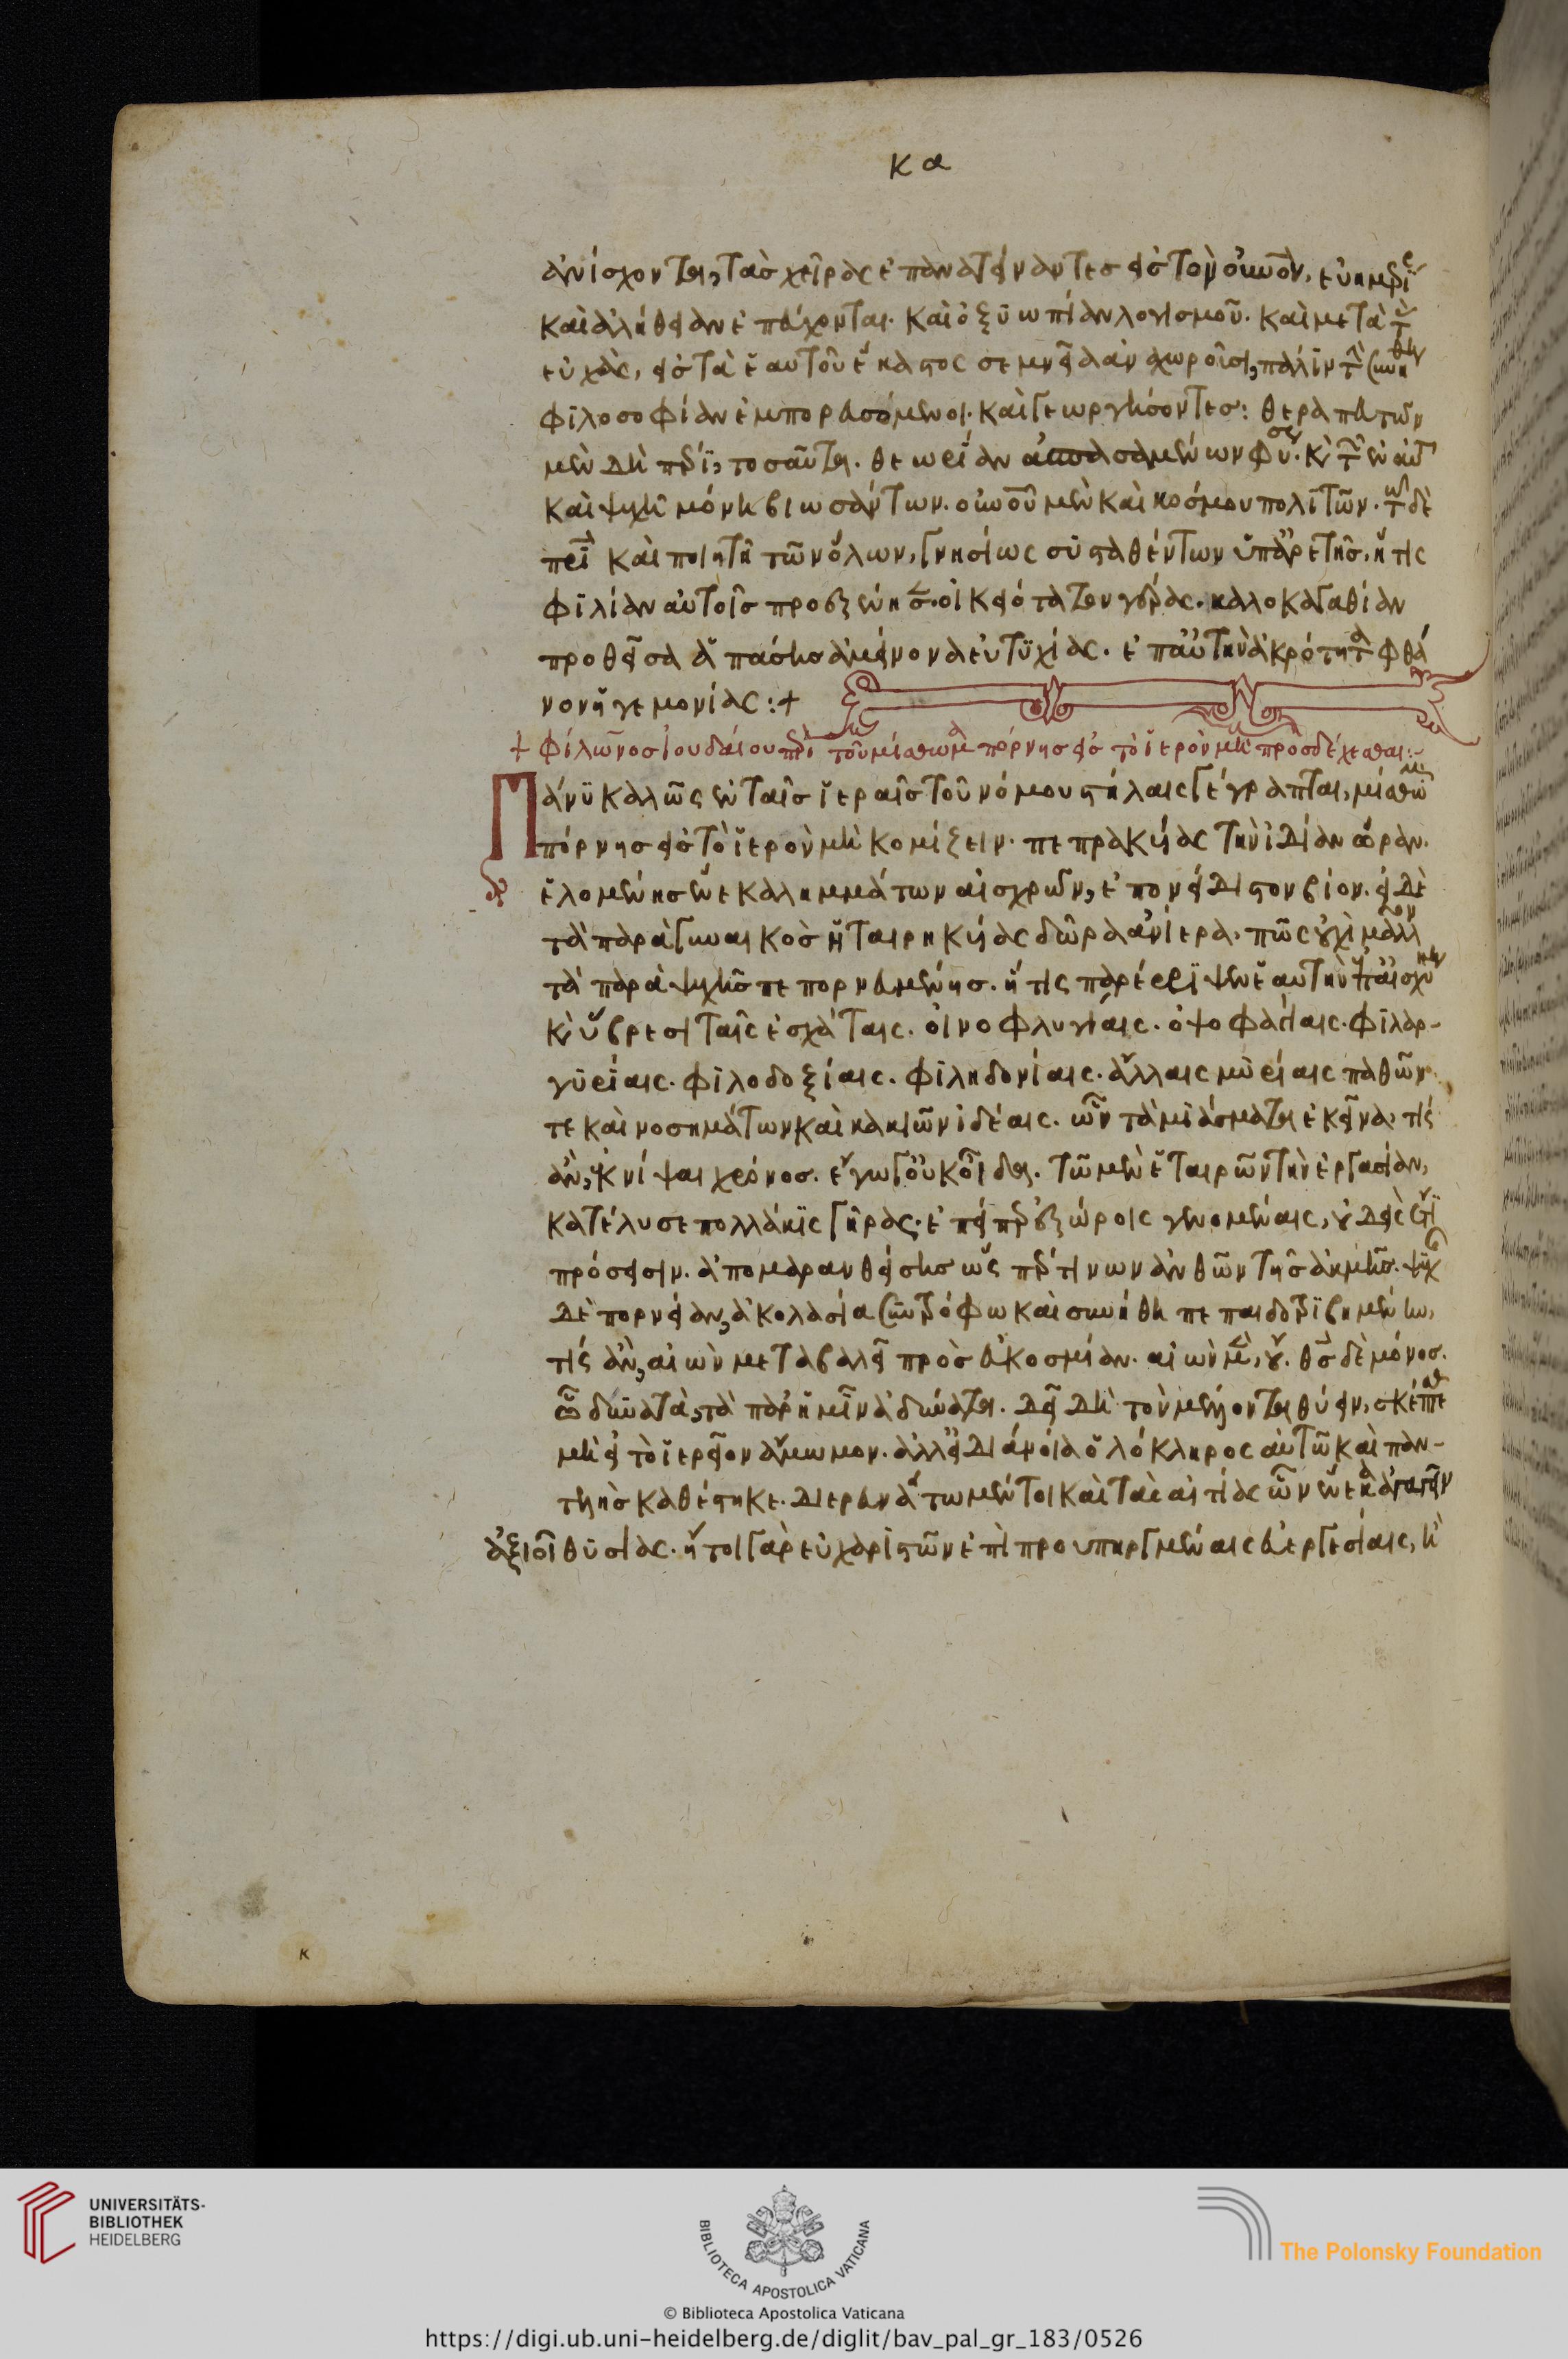 κα
ἀνίσχοντα, τὰς χεῖρας ἐπανατείναντες εἰς τὸν οὐνὸν, εὐημερί
καὶ ἀλήθειαν ἐπεύχονται. καὶ ὀξυωπίαν λογισμοῦ. καὶ μετὰ τὰς
εὐχὰς, εἰς τὰ ἑαυτοῦ ἕκαστος σεμνεῖα ἀναχωροῦσι, πάλιν τὴν συνήθη
φιλοσοφίαν ἐμπορευσόμενοι. καὶ γεωργήσοντες: θεραπευτῶν
μὲν δὴ πέρι, τοσαῦτα. θεωρίαν ἀσπασαμένων φύσεως. καὶ τῶν ἐν αὐτῇ
καὶ ψυχῇ μόνῃ βιωσάντων. οὐνοῦ μὲν καὶ κόσμου πολιτῶν. τῷ δὲ
πρὶ καὶ ποιητῇ τῶν ὅλων, γνησίως συσταθέντων ὑπ' ἀρετῆς. ἥτις
φιλίαν αὐτοῖς προὐξένησεν. οἰκειότατον γέρας. καλοκαγαθίαν
προθεῖσα ἁπάσης ἀμείνονα εὐτυχίας. ἐπ' αὐτὴν ἀκρότητα φθά
νον ἡγεμονίας:+
+ φίλωνος ἰουδαίου περὶ τοῦ μίσθωμα πόρνης εἰς τὸ ἱερὸν μὴ προσδέχεσθαι:
Πάνυ καλῶς ἐν ταῖς ἱεραῖς τοῦ νόμου στήλαις γέγραπται, μίσθωμα
πόρνης εἰς τὸ ἱερὸν μὴ κομίζειν. πεπρακυίας τὴν ἰδίαν ὥραν.
ἑλομένης ἕνεκα λημμάτων αἰσχρῶν, ἐπονείδιστον βίον. εἰ δὲ
τὰ παρὰ γυναικὸς ἡταιρηκυίας δῶρα ἀνίερα. πῶς οὐχὶ μᾶλλον
τὰ παρὰ ψυχῆς πεπορνευμένης. ἥτις παρέρριψεν ἑαυτὴν ἐπ' αἰσχύνην
καὶ ὕβρεσι ταῖς ἐσχάταις. οἰνοφλυγίαις. ὀψοφαγίαις. φιλαρ-
γυρίαις. φιλοδοξίαις. φιληδονίαις. ἄλλαις μυρίαις παθῶν
τε καὶ νοσημάτων καὶ κακιῶν ἰδέαις. ὧν τὰ μιάσματα ἐκεῖνα, τίς
ἂν, ἐκνίψαι χρόνος. ἐγὼ γ' οὐκ οἶδα. τῶν μὲν ἑταιρῶν τὴν ἐργασίαν,
κατέλυσε πολλάκις γῆρας. ἐπεὶ παρ' ἐξώροις γενομέναις, οὐδεὶς ἔτι
πρόσεισιν. ἀπομαρανθείσης ὥσπερ τινων ἀνθῶν τῆς ἀκμῆς. ψυχ
δὲ πορνείαν, ἀκολασία συντρόφω καὶ συνήθη πεπαιδοτριβημένην,
τίς ἂν, αἰὼν μεταβαλεῖ πρὸς εὐκοσμίαν. αἰὼν μὲν, οὐ. θς δὲ μόνος.
ὧ δυνατὰ, τὰ παρ' ἡμῖν ἀδύνατα. δεῖ δὴ τὸν μέλλοντα θύειν, σκέπτεσθαι
μὴ εἰ τὸ ἱερεῖον ἄμωμον. ἀλλ' εἰ διάνοια ὁλόκληρος αὐτῶ καὶ παν-
τελὴς καθέστηκε. διερευνάτω μέντοι καὶ τὰς αἰτίας ὧν ἕνεκα ἀναγειν
ἀξιοῖ θυσίας. ἤτοι γὰρ εὐχαριστῶν ἐπὶ προυπηργμέναις εὐεργεσίαις, ἢ
κ
UNIVERSITÄTS-
BIBLIOTHEK
HEIDELBERG
BIBLIOTECA APOSTOLICA VATICANA
The Polonsky Foundation
© Biblioteca Apostolica Vaticana
https://digi.ub.uni-heidelberg.de/diglit/bav_pal_gr_183/0526